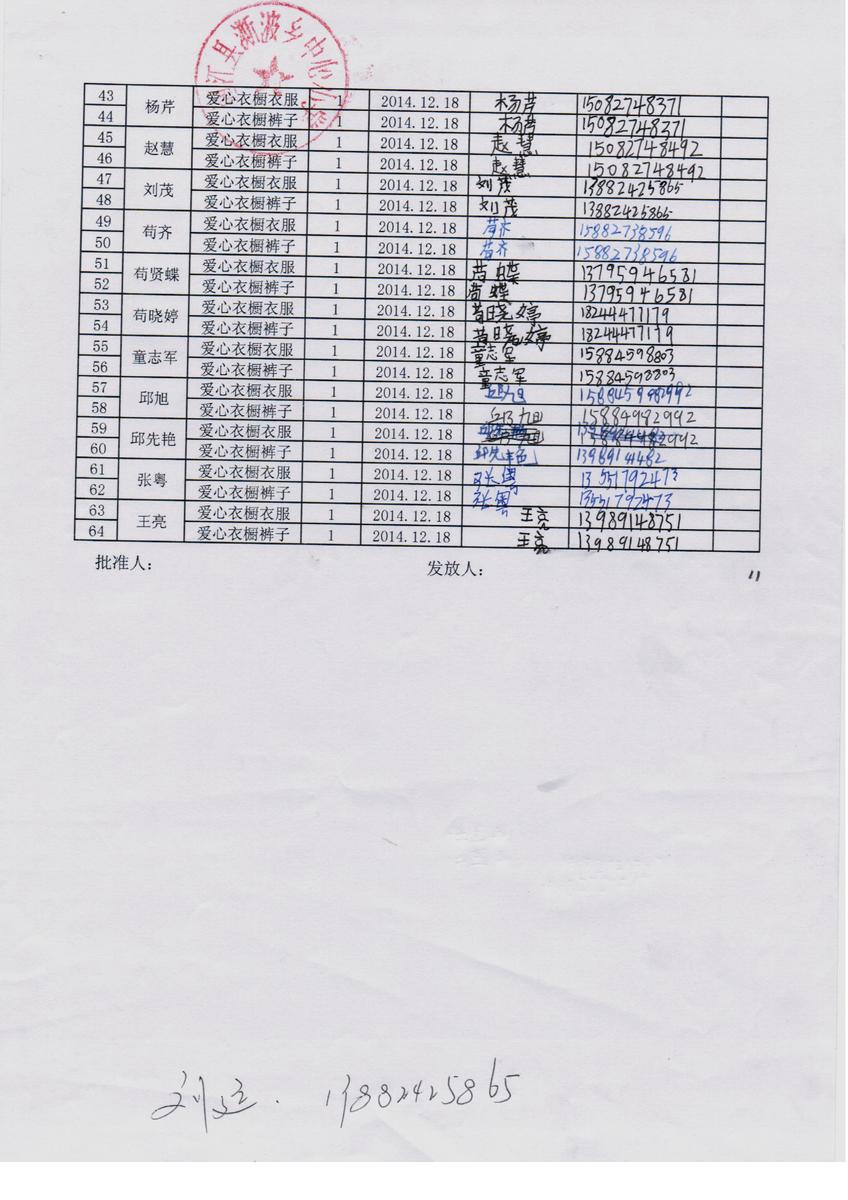 江县渐波乡中心小学
43 杨芹 爱心衣橱衣服 1 2014.12.18 杨芹 15082748371
44 爱心衣橱裤子 1 2014.12.18 杨芹 15082748371
45 赵慧 爱心衣橱衣服 1 2014.12.18 赵慧 15082748492
46 爱心衣橱裤子 1 2014.12.18 赵慧 15082748492
47 刘茂 爱心衣橱衣服 1 2014.12.18 刘茂 13882425865
48 爱心衣橱裤子 1 2014.12.18 刘茂 13882425865
49 苟齐 爱心衣橱衣服 1 2014.12.18 苟齐 15882738596
50 爱心衣橱裤子 1 2014.12.18 苟齐 15882738596
51 苟贤蝶 爱心衣橱衣服 1 2014.12.18 13795946581
52 爱心衣橱裤子 1 2014.12.18 13795946581
53 苟晓婷 爱心衣橱衣服 1 2014.12.18 苟晓婷 18244477179
54 爱心衣橱裤子 1 2014.12.18 苟晓婷 18244477179
55 童志军 爱心衣橱衣服 1 2014.12.18 童志军 15884598803
56 爱心衣橱裤子 1 2014.12.18 童志军 15884598803
57 邱旭 爱心衣橱衣服 1 2014.12.18 邱旭
58 爱心衣橱裤子 1 2014.12.18 邱旭 15884982992
59 邱先艳 爱心衣橱衣服 1 2014.12.18
60 爱心衣橱裤子 1 2014.12.18 邱先艳
61 张粤 爱心衣橱衣服 1 2014.12.18 张粤 13551792473
62 爱心衣橱裤子 1 2014.12.18 张粤 13551792473
63 王亮 爱心衣橱衣服 1 2014.12.18 王亮 13989148751
64 爱心衣橱裤子 1 2014.12.18 王亮 13989148751
批准人： 发放人：
11
13882425865